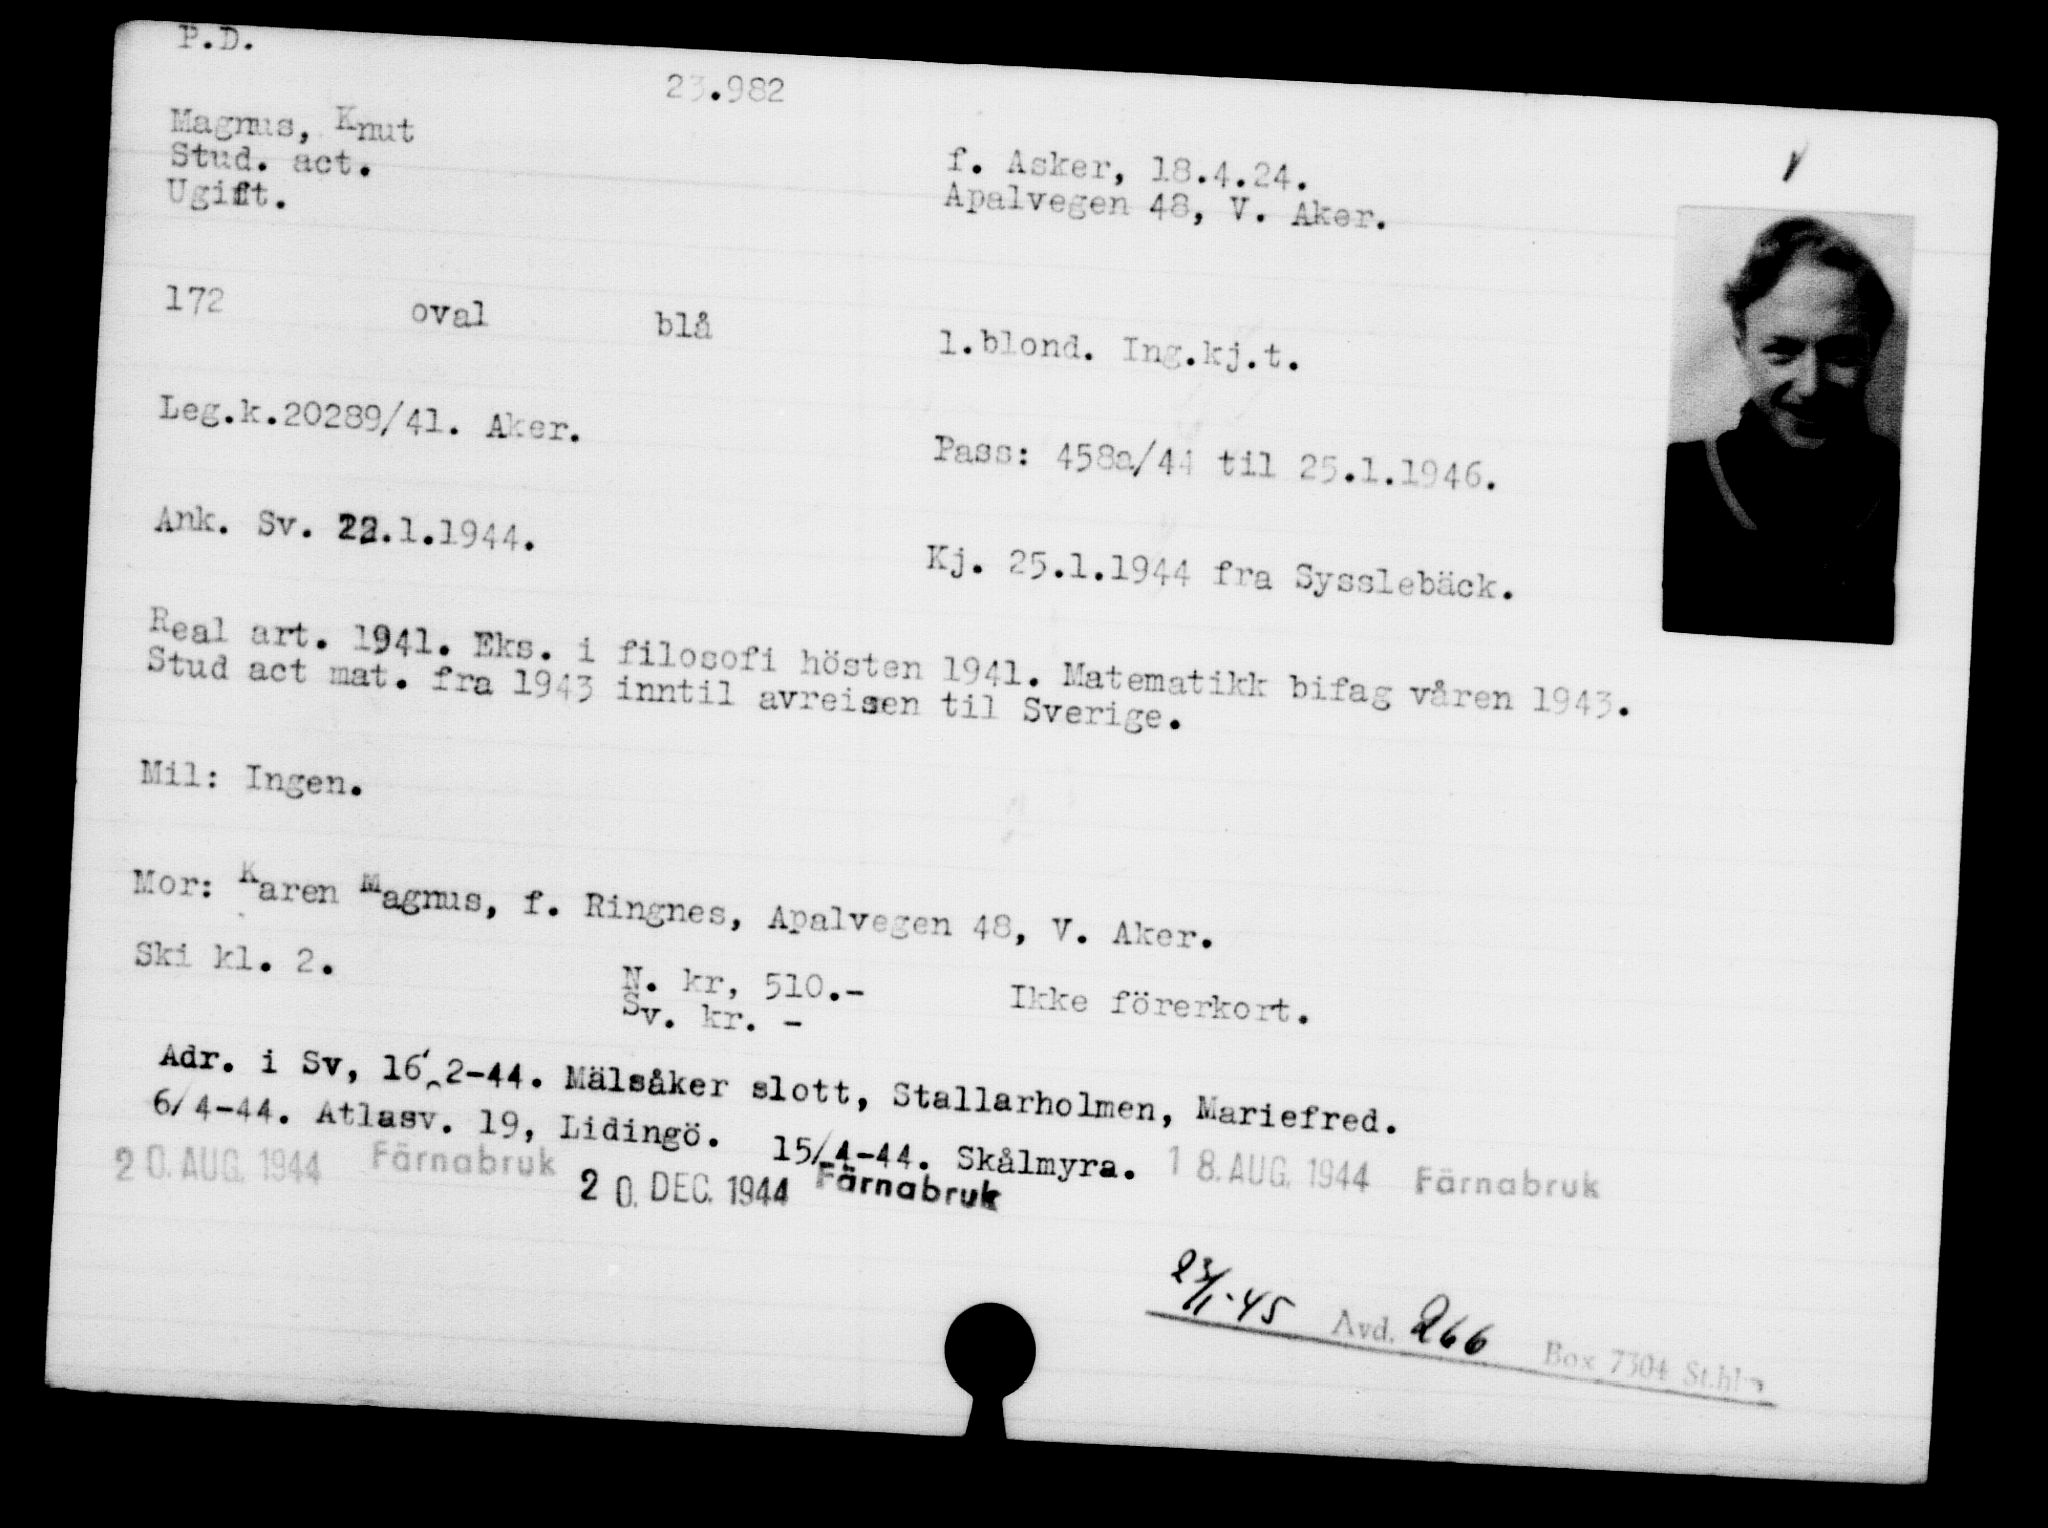 P.D.
23.982
Magnus, Knut
Stud. act.
Ugift.
f. Asker, 18.4.24.
Apalvegen 48, V. Aker.
172 oval blå l.blond. Ing.kj.t.
Leg.k.20289/41. Aker.
Pass: 458a/44 til 25.1.1946.
Ank. Sv. 22.1.1944.
Kj. 25.1.1944 fra Sysslebäck.
Real art. 1941. Eks. i filosofi hösten 1941. Matematikk bifag våren 1943.
Stud act mat. fra 1943 inntil avreisen til Sverige.
Mil: Ingen.
Mor: Karen Magnus, f. Ringnes, Apalvegen 48, V. Aker.
Ski kl. 2.
N. kr, 510.-
Sv. kr. -
Ikke förerkort.
Adr. i Sv, 16/2-44. Mälsåker slott, Stallarholmen, Mariefred.
6/4-44. Atlasv. 19, Lidingö. 15/4-44. Skålmyra. 18. AUG. 1944 Färnabruk
20. AUG. 1944 Färnabruk 20. DEC. 1944 Färnabruk
23/1-45 Avd. 266 Box 7304 St.hl